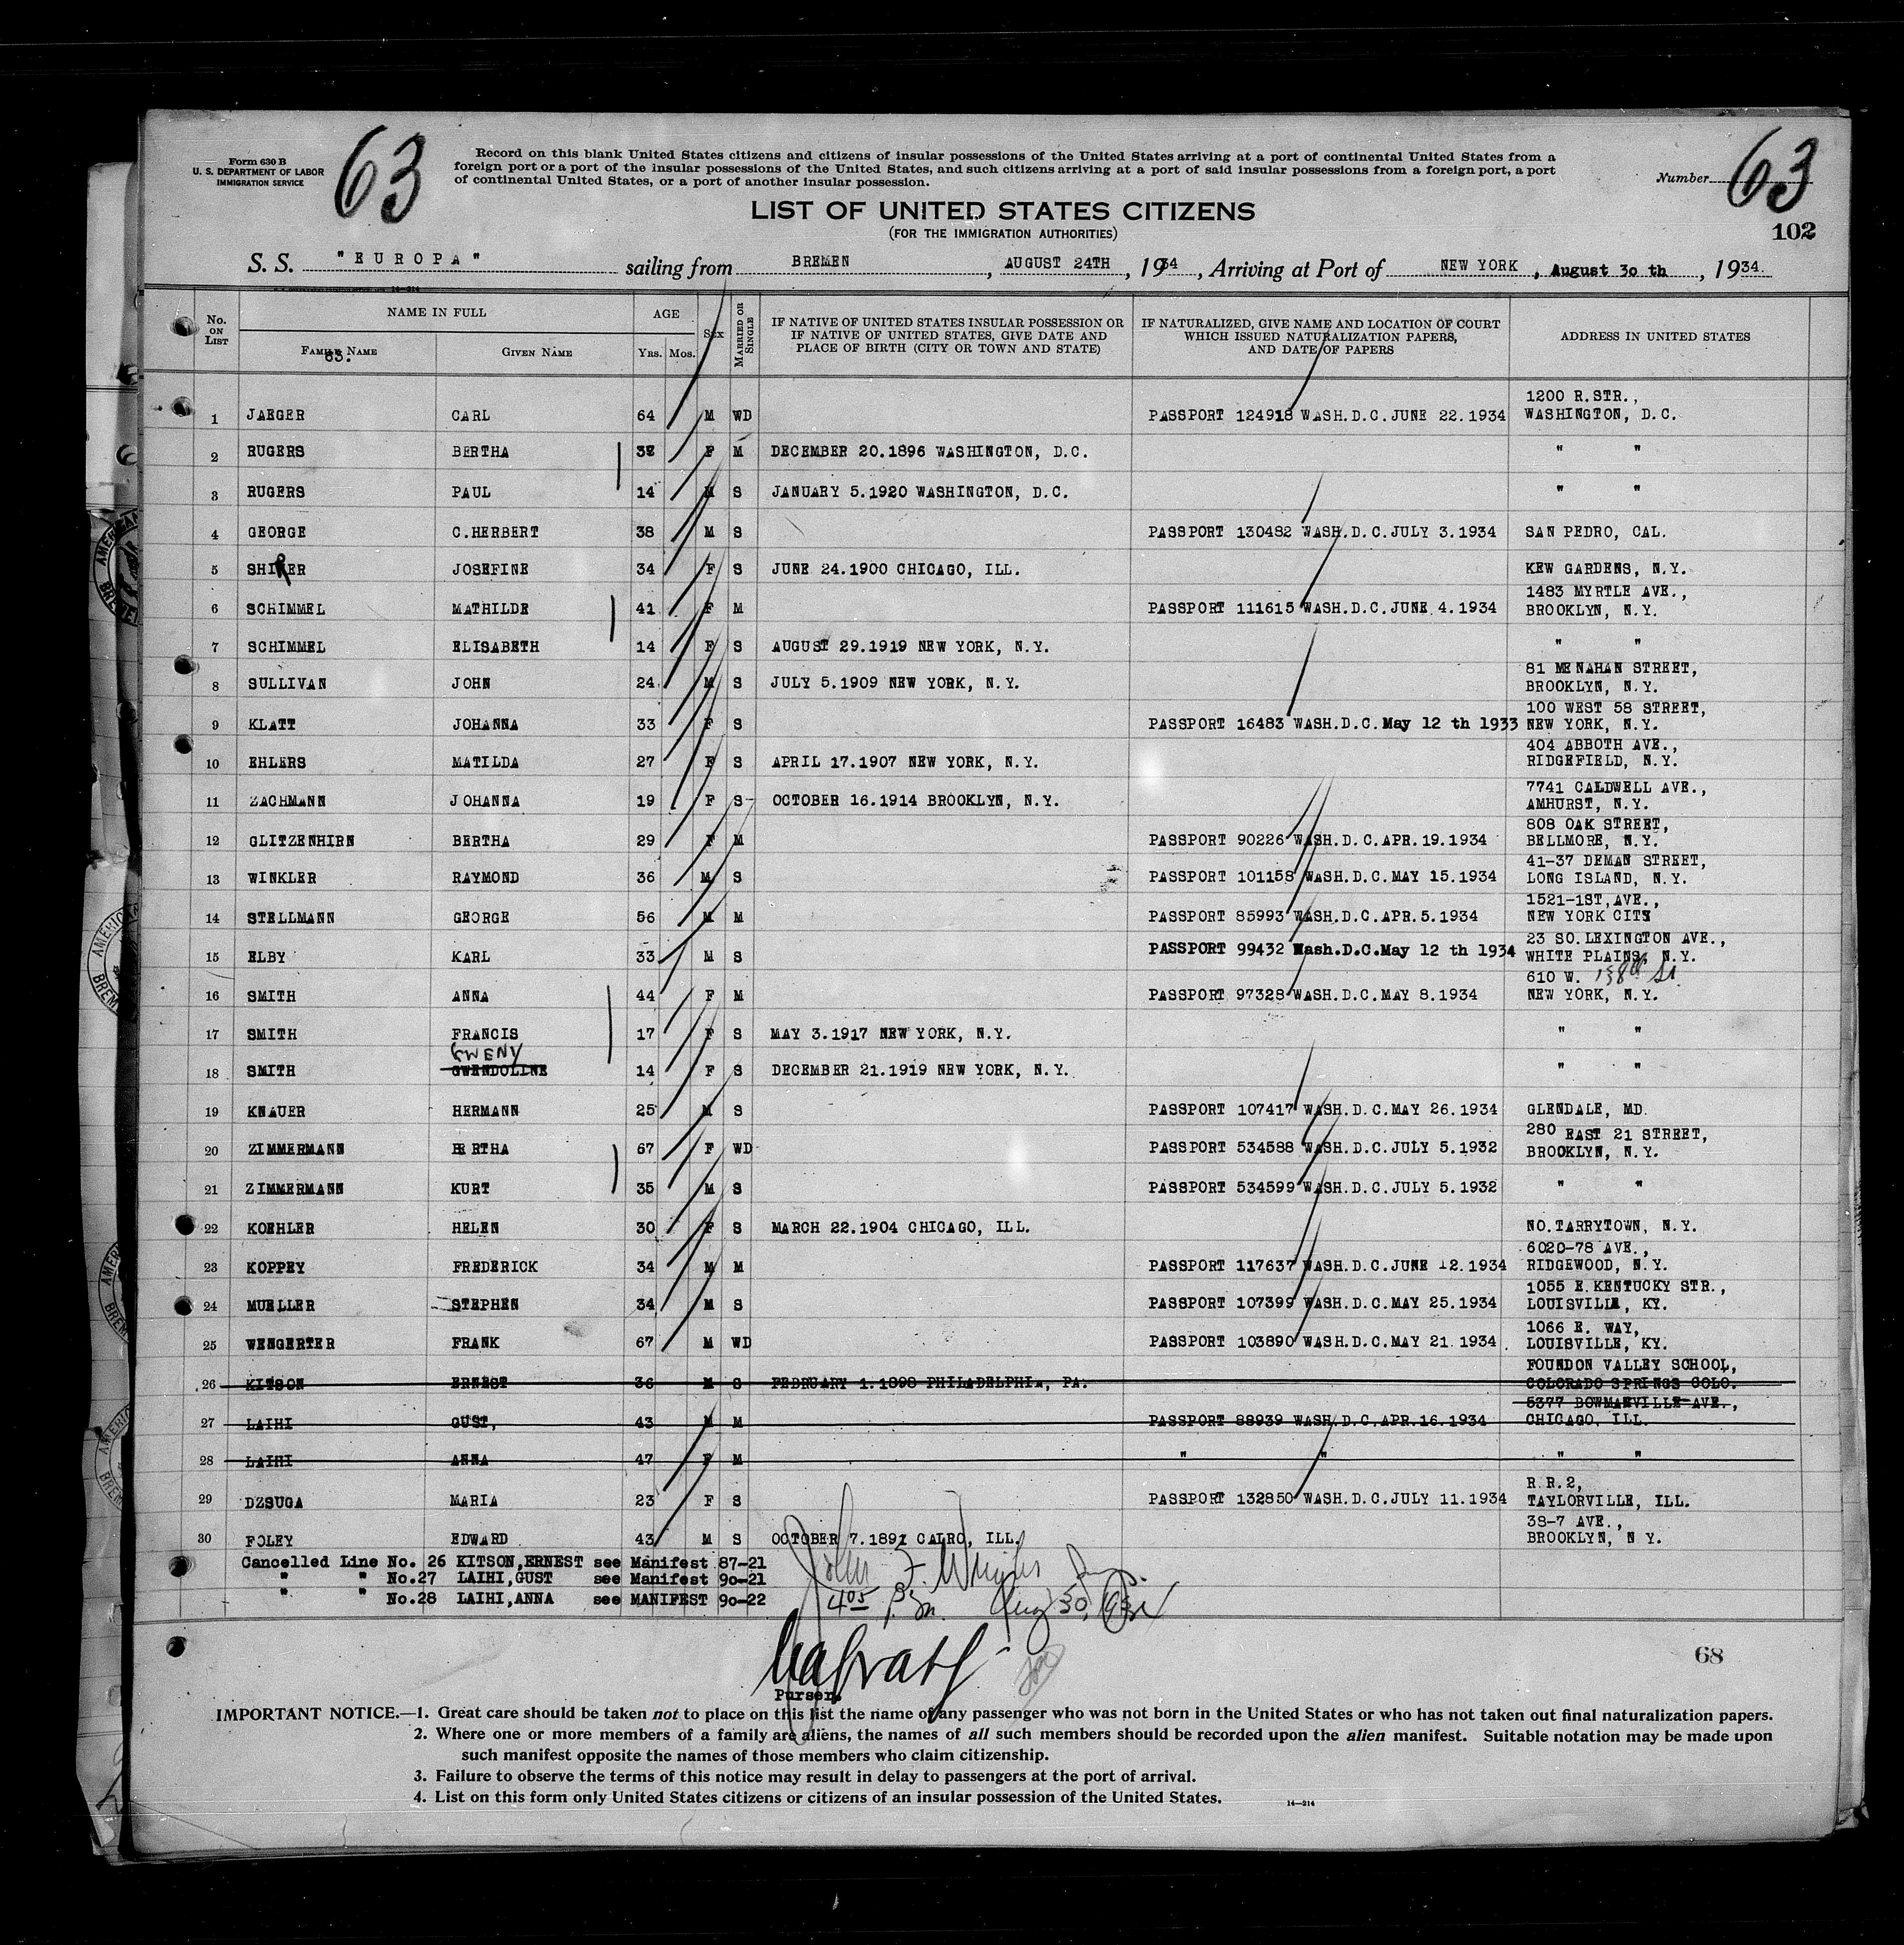 63
63
Form 630 B
U. S. DEPARTMENT OF LABOR
IMMIGRATION SERVICE
Record on this blank United States citizens and citizens of insular possessions of the United States arriving at a port of continental United States from a
foreign port or a port of the insular possessions of the United States, and such citizens arriving at a port of said insular possessions from a foreign port, a port
of continental United States, or a port of another insular possession.
Number
LIST OF UNITED STATES CITIZENS
(FOR THE IMMIGRATION AUTHORITIES)
102
S. S. "EUROPA" sailing from BREMEN, AUGUST 24TH, 1934, Arriving at Port of NEW YORK, August 30 th, 1934.
No. ON LIST NAME IN FULL AGE Sex MARRIED OR SINGLE IF NATIVE OF UNITED STATES INSULAR POSSESSION OR IF NATIVE OF UNITED STATES, GIVE DATE AND PLACE OF BIRTH (CITY OR TOWN AND STATE) IF NATURALIZED, GIVE NAME AND LOCATION OF COURT WHICH ISSUED NATURALIZATION PAPERS, AND DATE OF PAPERS ADDRESS IN UNITED STATES
FAMILY NAME GIVEN NAME Yrs. Mos.
63.
1200 R.STR.,
1 JAEGER CARL 64 M WD PASSPORT 124918 WASH.D.C.JUNE 22.1934 WASHINGTON, D.C.
2 RUGERS BERTHA 38 F M DECEMBER 20.1896 WASHINGTON, D.C. " "
3 RUGERS PAUL 14 M S JANUARY 5.1920 WASHINGTON, D.C. " "
4 GEORGE C.HERBERT 38 M S PASSPORT 130482 WASH.D.C.JULY 3.1934 SAN PEDRO, CAL.
5 SHIRER JOSEFINE 34 F S JUNE 24.1900 CHICAGO, ILL. KEW GARDENS, N.Y.
1483 MYRTLE AVE.,
6 SCHIMMEL MATHILDE 41 F M PASSPORT 111615 WASH.D.C.JUNE 4.1934 BROOKLYN, N.Y.
7 SCHIMMEL ELISABETH 14 F S AUGUST 29.1919 NEW YORK, N.Y. " "
81 MENAHAN STREET,
8 SULLIVAN JOHN 24 M S JULY 5.1909 NEW YORK, N.Y. BROOKLYN, N.Y.
100 WEST 58 STREET,
9 KLATT JOHANNA 33 F S PASSPORT 16483 WASH.D.C.May 12 th 1933 NEW YORK, N.Y.
404 ABBOTH AVE.,
10 EHLERS MATILDA 27 F S APRIL 17.1907 NEW YORK, N.Y. RIDGEFIELD, N.Y.
7741 CALDWELL AVE.,
11 ZACHMANN JOHANNA 19 F S OCTOBER 16.1914 BROOKLYN, N.Y. AMHURST, N.Y.
808 OAK STREET,
12 GLITZENHIRN BERTHA 29 F M PASSPORT 90226 WASH.D.C.APR.19.1934 BELLMORE, N.Y.
41-37 DEMAN STREET,
13 WINKLER RAYMOND 36 M S PASSPORT 101158 WASH.D.C.MAY 15.1934 LONG ISLAND, N.Y.
1521-1ST,AVE.,
14 STELLMANN GEORGE 56 M M PASSPORT 85993 WASH.D.C.APR.5.1934 NEW YORK CITY
23 SO.LEXINGTON AVE.,
15 ELBY KARL 33 M S PASSPORT 99432 Wash.D.C.May 12 th 1934 WHITE PLAINS, N.Y.
610 W. 138th St.
16 SMITH ANNA 44 F M PASSPORT 97328 WASH.D.C.MAY 8.1934 NEW YORK, N.Y.
17 SMITH FRANCIS 17 F S MAY 3.1917 NEW YORK, N.Y. " "
GWENY
18 SMITH GWENDOLINE 14 F S DECEMBER 21.1919 NEW YORK, N.Y. " "
19 KNAUER HERMANN 25 M S PASSPORT 107417 WASH.D.C.MAY 26.1934 GLENDALE, MD.
280 EAST 21 STREET,
20 ZIMMERMANN BERTHA 67 F WD PASSPORT 534588 WASH.D.C.JULY 5.1932 BROOKLYN, N.Y.
21 ZIMMERMANN KURT 35 M S PASSPORT 534599 WASH.D.C.JULY 5.1932 " "
22 KOEHLER HELEN 30 F S MARCH 22.1904 CHICAGO, ILL. NO.TARRYTOWN, N.Y.
6020-78 AVE.,
23 KOPPEY FREDERICK 34 M M PASSPORT 117637 WASH.D.C.JUNE 12.1934 RIDGEWOOD, N.Y.
1055 E.KENTUCKY STR.,
24 MUELLER STEPHEN 34 M S PASSPORT 107399 WASH.D.C.MAY 25.1934 LOUISVILLE, KY.
1066 E. WAY,
25 WENGERTER FRANK 67 M WD PASSPORT 103890 WASH.D.C.MAY 21.1934 LOUISVILLE, KY.
FOUNDON VALLEY SCHOOL,
26 KITSON ERNEST 36 M S FEBRUARY 1.1898 PHILADELPHIA, PA. COLORADO SPRINGS COLO.
5377 BOWMANVILLE AVE.,
27 LAIHI GUST, 43 M M PASSPORT 88939 WASH.D.C.APR.16.1934 CHICAGO, ILL.
28 LAIHI ANNA 47 F M " " " "
R.R.2,
29 DZSUGA MARIA 23 F S PASSPORT 132850 WASH.D.C.JULY 11.1934 TAYLORVILLE, ILL.
38-7 AVE.,
30 FOLEY EDWARD 43 M S OCTOBER 7.1891 CAIRO, ILL. BROOKLYN, N Y.
Cancelled Line No. 26 KITSON,ERNEST see Manifest 87-21
" " No.27 LAIHI,GUST see Manifest 90-21
" " No.28 LAIHI,ANNA see MANIFEST 90-22
John F.
4 05 P.M. Aug 30, 1934
Purser.
68
IMPORTANT NOTICE.—1. Great care should be taken not to place on this list the name of any passenger who was not born in the United States or who has not taken out final naturalization papers.
2. Where one or more members of a family are aliens, the names of all such members should be recorded upon the alien manifest. Suitable notation may be made upon
such manifest opposite the names of those members who claim citizenship.
3. Failure to observe the terms of this notice may result in delay to passengers at the port of arrival.
4. List on this form only United States citizens or citizens of an insular possession of the United States.
14—214